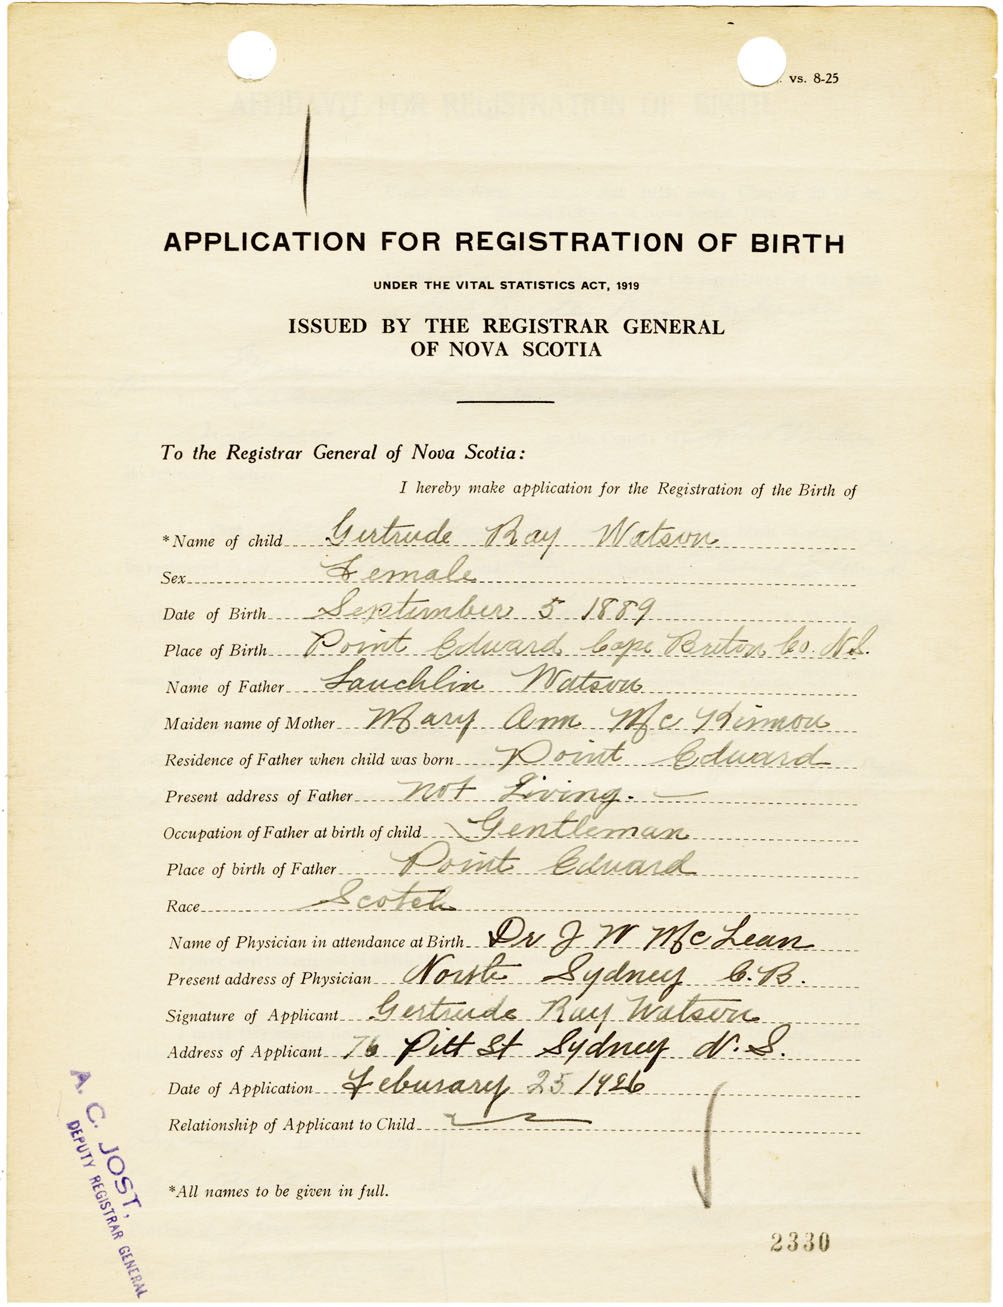 vs. 8-25
APPLICATION FOR REGISTRATION OF BIRTH
UNDER THE VITAL STATISTICS ACT, 1919
ISSUED BY THE REGISTRAR GENERAL
OF NOVA SCOTIA
To the Registrar General of Nova Scotia:
I hereby make application for the Registration of the Birth of
*Name of child Gertrude Ray Watson
Sex Female
Date of Birth September 5 1889
Place of Birth Point Edward Cape Breton Co. N.S.
Name of Father Lauchlin Watson
Maiden name of Mother Mary Ann Mc Kinnon
Residence of Father when child was born Point Edward
Present address of Father not Living.
Occupation of Father at birth of child Gentleman
Place of birth of Father Point Edward
Race Scotch
Name of Physician in attendance at Birth Dr J W McLean
Present address of Physician North Sydney C.B.
Signature of Applicant Gertrude Ray Watson
Address of Applicant 76 Pitt St Sydney N.S.
Date of Application Feburary 25 1926
Relationship of Applicant to Child
*All names to be given in full.
A. C. JOST,
DEPUTY REGISTRAR GENERAL
2330